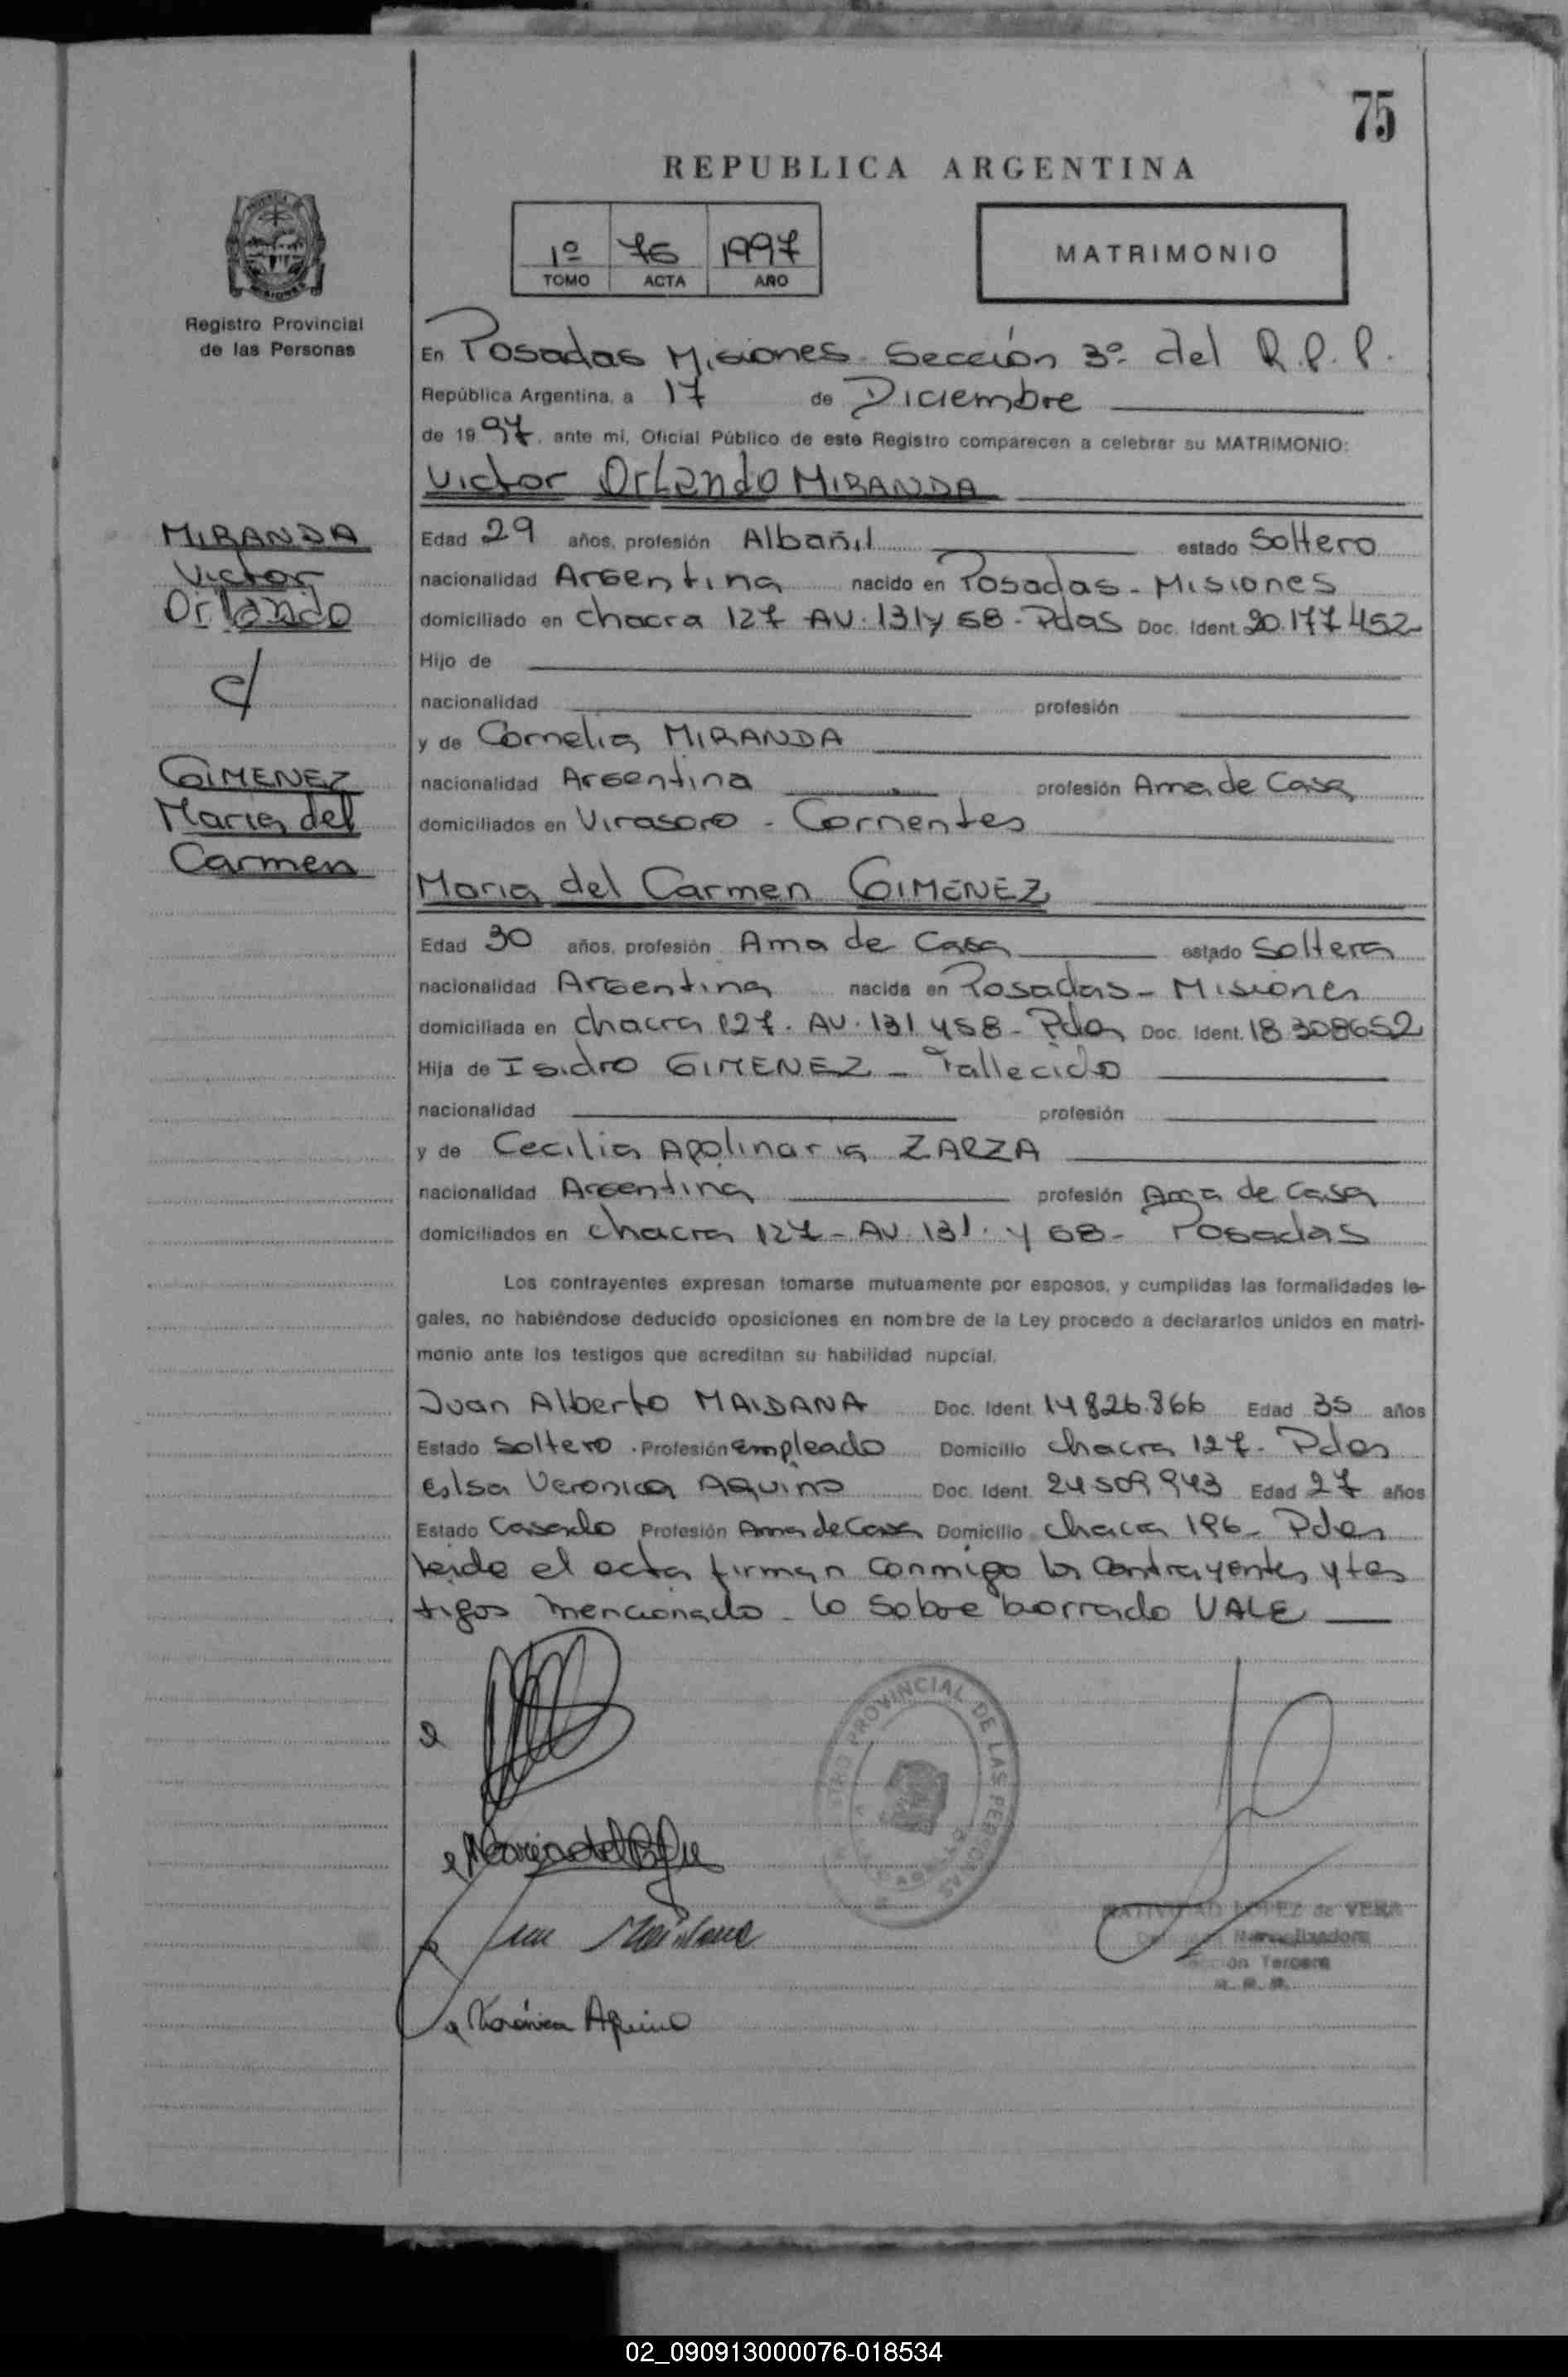 75
REPUBLICA ARGENTINA
1º 76 1997
TOMO ACTA AÑO
MATRIMONIO
Registro Provincial
de las Personas
En Posadas Misiones Sección 3º del R.P.P.
República Argentina, a 17 de Diciembre
de 1997, ante mí, Oficial Público de este Registro comparecen a celebrar su MATRIMONIO:
Victor Orlando MIRANDA
MIRANDA
Victor
Orlando
c/
GIMENEZ
Maria del
Carmen
Edad 29 años, profesión Albañil estado Soltero
nacionalidad Argentina nacido en Posadas - Misiones
domiciliado en chacra 127 AV. 131 y 68 - Pdas Doc. Ident. 20.177452
Hijo de
nacionalidad profesión
y de Cornelia MIRANDA
nacionalidad Argentina profesión Ama de Casa
domiciliados en Virasoro - Corrientes
Maria del Carmen GIMENEZ
Edad 30 años, profesión Ama de Casa estado Soltera
nacionalidad Argentina nacida en Posadas - Misiones
domiciliada en chacra 127. AV. 131 y 58 - Pdas Doc. Ident. 18308652
Hija de Isidro GIMENEZ - Fallecido
nacionalidad profesión
y de Cecilia Apolinaria ZARZA
nacionalidad Argentina profesión Ama de Casa
domiciliados en chacra 127 - AV. 131. y 68 - Posadas
Los contrayentes expresan tomarse mutuamente por esposos, y cumplidas las formalidades le-
gales, no habiéndose deducido oposiciones en nombre de la Ley procedo a declararlos unidos en matri-
monio ante los testigos que acreditan su habilidad nupcial.
Juan Alberto MAIDANA Doc. Ident. 14826.866 Edad 35 años
Estado Soltero Profesión empleado Domicilio chacra 127 - Pdas
Elsa Veronica AQUINO Doc. Ident. 24509943 Edad 27 años
Estado Casado Profesión Ama de Casa Domicilio chacra 196 - Pdas
leido el acta firman conmigo los contrayentes y tes
tigos mencionado - lo sobre borrado VALE
PROVINCIAL DE LAS PERSONAS
Veronica Aquino
LOPEZ de VERA
Tercera
02_090913000076-018534